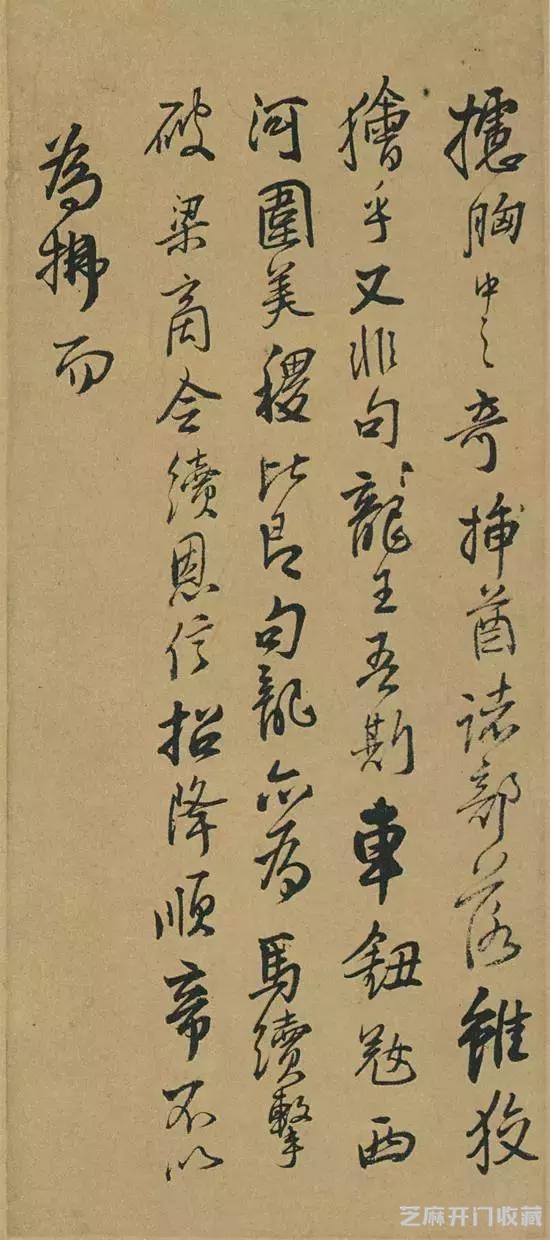 攄胸中之奇捕酋諸部落雖狡
獪乎又非句龍王吾斯車鈕寇西
河圍美稷比旦句龍亦為馬續擊
破梁商令續恩信招降順帝不以
為拂而
芝麻开门收藏